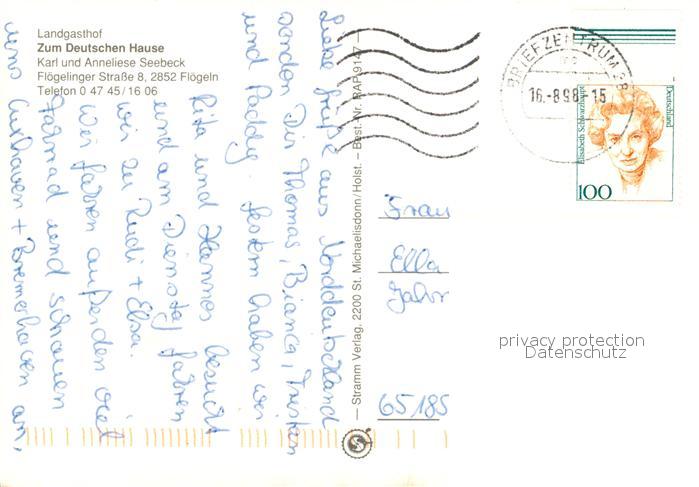 Landgasthof
Zum Deutschen Hause
Karl und Anneliese Seebeck
Flögelinger Straße 8, 2852 Flögeln
Telefon 0 47 45/16 06
Liebe Grüße aus Norddeutschland
senden Dir Thomas, Bianca, Tristan
und Paddy. Gestern haben wir
Rita und Hannes besucht
und am Dienstag fahren
wir zu Rudi + Elsa.
Wir fahren außerdem viel
Fahrrad und schauen
uns Cuxhaven + Bremerhaven an.
— Stramm Verlag. 2200 St. Michaelisdonn/Holst. – Best.-Nr. RAP 9147 —
BRIEFZENTRUM 28
16.-8.98-15
Deutschland
Elisabeth Schwarzhaupt
100
Frau
Ella
Jahn
65185
privacy protection
Datenschutz